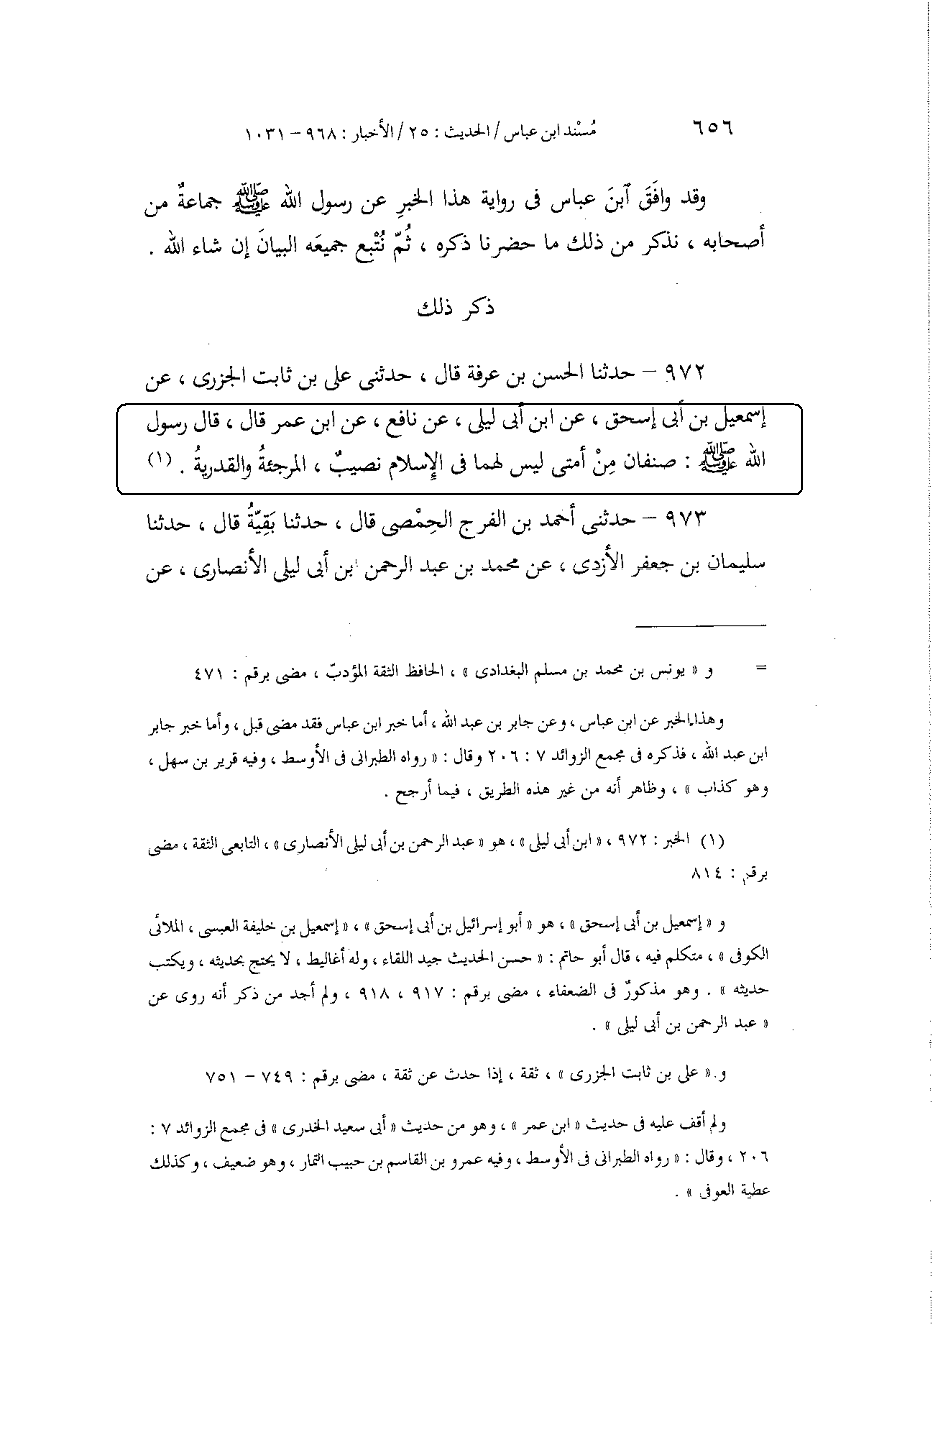 ٦٥٦ مُسْند ابن عباس / الحديث : ٢٥ / الأخبار : ٩٦٨ – ١٠٣١
وقد وافَقَ آبنَ عباس فى رواية هذا الخبرِ عن رسول الله ﷺ جماعةٌ من
أصحابه ، نذكر من ذلك ما حضرنا ذكره ، ثُمّ نُتْبع جميعَه البيانَ إن شاء الله .
ذكر ذلك
٩٧٢ – حدثنا الحسن بن عرفة قال ، حدثنى على بن ثابت الجزرى ، عن
إسمعيل بن أبى إسحق ، عن ابن أبى ليلى ، عن نافع ، عن ابن عمر قال ، قال رسول
الله ﷺ : صنفان مِنْ أمتى ليس لهما فى الإسلام نصيبٌ ، المرجئةُ والقدريةُ . (١)
٩٧٣ – حدثنى أحمد بن الفرج الحِمْصى قال ، حدثنا بَقِيّةُ قال ، حدثنا
سليمان بن جعفر الأزدى ، عن محمد بن عبد الرحمن بن أبى ليلى الأنصارى ، عن
= و « يونس بن محمد بن مسلم البغدادى » ، الحافظ الثقة المؤدبّ ، مضى برقم : ٤٧١
وهذا الخبر عن ابن عباس ، وعن جابر بن عبد الله ، أما خبر ابن عباس فقد مضى قبل ، وأما خبر جابر
ابن عبد الله ، فذكره فى مجمع الزوائد ٧ : ٢٠٦ وقال : « رواه الطبرانى فى الأوسط ، وفيه قرير بن سهل ،
وهو كذاب » ، وظاهر أنه من غير هذه الطريق ، فيما أرجح .
(١) الخبر : ٩٧٢ ، « ابن أبى ليلى » ، هو « عبد الرحمن بن أبى ليلى الأنصارى » ، التابعى الثقة ، مضى
برقم : ٨١٤
و « إسمعيل بن أبى إسحق » ، هو « أبو إسرائيل بن أبى إسحق » ، « إسمعيل بن خليفة العبسى ، الملائى
الكوفى » ، متكلم فيه ، قال أبو حاتم : « حسن الحديث جيد اللقاء ، وله أغاليط ، لا يحتج بحديثه ، ويكتب
حديثه » . وهو مذكورٌ فى الضعفاء ، مضى برقم : ٩١٧ ، ٩١٨ ، ولم أجد من ذكر أنه روى عن
« عبد الرحمن بن أبى ليلى » .
و « على بن ثابت الجزرى » ، ثقة ، إذا حدث عن ثقة ، مضى برقم : ٧٤٩ – ٧٥١
ولم أقف عليه فى حديث « ابن عمر » ، وهو من حديث « أبى سعيد الخدرى » فى مجمع الزوائد ٧ :
٢٠٦ ، وقال : « رواه الطبرانى فى الأوسط ، وفيه عمرو بن القاسم بن حبيب التمار ، وهو ضعيف ، وكذلك
عطية العوفى » .